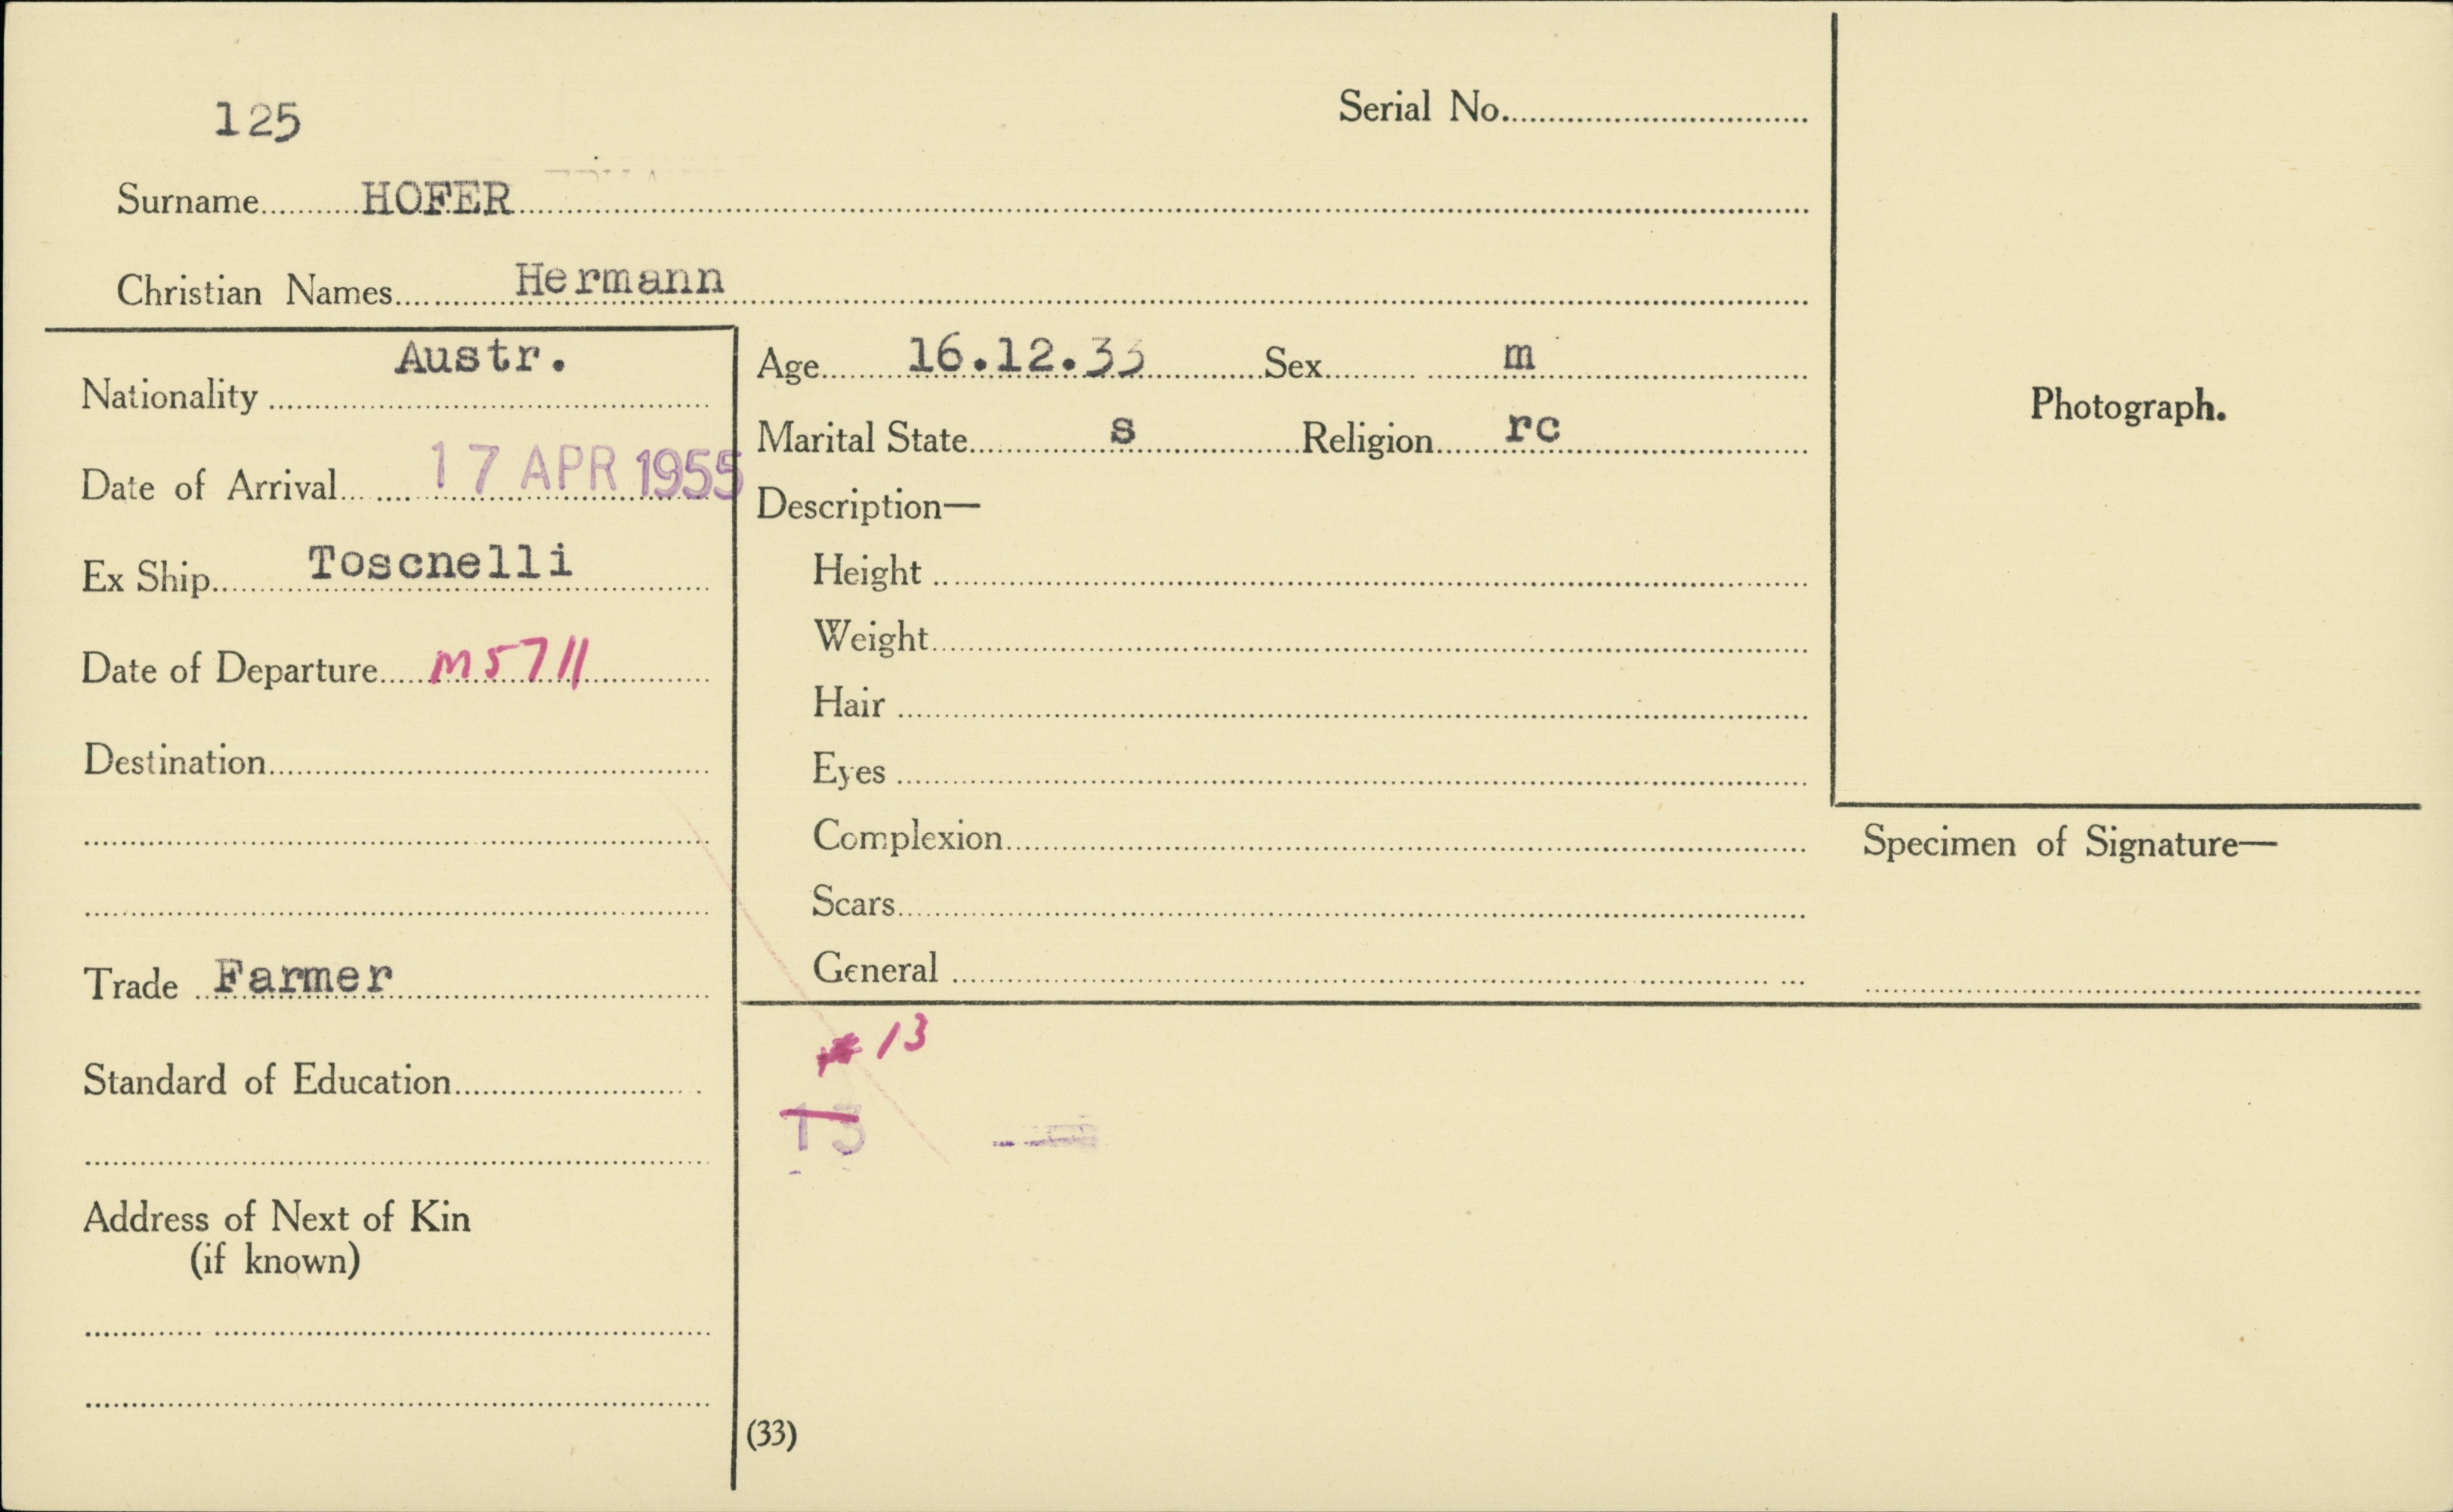 125
Serial No.
Surname HOFER
Christian Names Hermann
Austr.
Nationality
Date of Arrival 17 APR 1955
Ex Ship Toscnelli
Date of Departure M5711
Destination
Trade Farmer
Standard of Education
Address of Next of Kin
(if known)
Age 16.12.33 Sex m
Marital State s Religion rc
Description—
Height
Weight
Hair
Eyes
Complexion
Scars
General
Photograph.
Specimen of Signature—
13
13
(33)